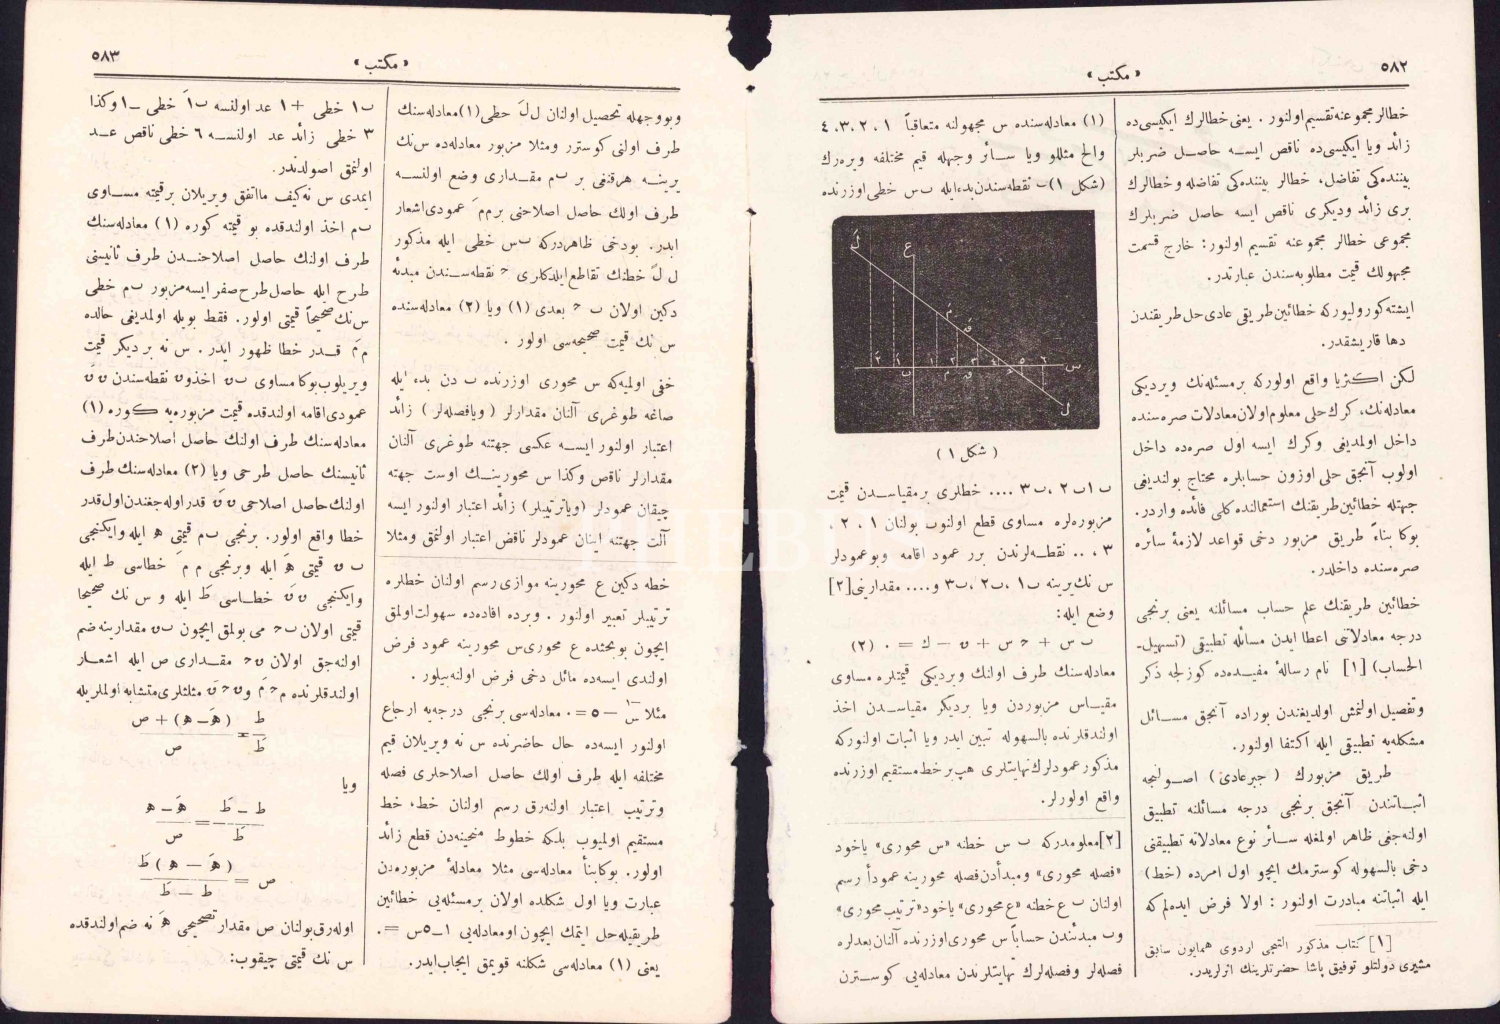 ٥٨٢
« مكتب »
خطالر مجموعنه تقسيم اولنور . يعنى خطالرك ايكيسى ده
زائد ويا ايكيسى ده ناقص ايسه حاصل ضربلر
بيننده كى تفاضل، خطالر بيننده كى تفاضله وخطالرك
برى زائد وديكرى ناقص ايسه حاصل ضربلرك
مجموعى خطالر مجموعنه تقسيم اولنور: خارج قسمت
مجهولك قيمت مطلوبه سندن عبارتدر.
ايشته كورولیوركه خطائين طريقى عادى حل طريقندن
دها قاريشقدر.
لكن اكثريا واقع اولوركه بر مسئله نك ويرديكى
معادله نك، كرك حلى معلوم اولان معادلات صره سنده
داخل اولمديغى وكرك ايسه اول صره ده داخل
اولوب آنجق حلى اوزون حسابلره محتاج بولنديغى
جهتله خطائين طريقنك استعمالنده كلى فائده واردر.
بوكا بناءً طريق مزبور دخى قواعد لازمۀ سائره
صره سنده داخلدر.
خطائين طريقنك علم حساب مسائلنه يعنى برنجى
درجه معادلاتنى اعطا ايدن مسائله تطبيقى (تسهيل-
الحساب) [١] نام رسالۀ مفيده ده كوزلجه ذكر
وتفصيل اولنمش اولديغندن بوراده آنجق مسائل
مشكله يه تطبيقى ايله اكتفا اولنور.
طريق مزبورك ( جبر عادى ) اصولنجه
اثباتندن آنجق برنجى درجه مسائلنه تطبيق
اولنه جغى ظاهر اولمغله سائر نوع معادلاته تطبيقنى
دخى بالسهوله كوسترمك ايچو اول امرده (خط)
ايله اثباتنه مبادرت اولنور : اولا فرض ايده لم كه
[١] كتاب مذكور التجى اردوى همايون سابق
مشيرى دولتلو توفيق پاشا حضرتلرينك اثرلريدر.
(١) معادله سنده س مجهولنه متعاقباً ١ ، ٢ ، ٣ ، ٤
والخ مثللو ويا سائر وجهله قيم مختلفه ويره رك
(شكل ١) ب نقطه سندن بدء ايله ب س خطى اوزرنده
( شكل ١ )
ب ١ ب ٢ ، ب ٣ .... خطلرى بر مقياسدن قيمت
مزبوره لره مساوى قطع اولنوب بولنان ١ ، ٢ ،
٣ ، .. نقطه لرندن برر عمود اقامه وبو عمودلر
س نك يرينه ب ١ ، ب ٢ ، ب ٣ و.... مقدارينى [٢]
وضع ايله:
معادله سنك طرف اولنك ويرديكى قيمتلره مساوى
مقياس مزبوردن ويا برديكر مقياسدن اخذ
اولندقلرنده بالسهوله تبين ايدر ويا اثبات اولنوركه
مذكور عمودلرك نهايتلرى هپ بر خط مستقيم اوزرنده
واقع اولورلر.
[٢] معلومدركه ب س خطنه «س محورى» ياخود
«فصله محورى» ومبدأدن فصله محورينه عموداً رسم
اولنان ب ع خطنه «ع محورى» ياخود «ترتيب محورى»
وب مبدئندن حساباً س محورى اوزرنده آلنان بعدلره
فصله لر وفصله لرك نهايتلرندن معادله يى كوسترن
٥٨٣
« مكتب »
وبو وجهله تحصيل اولنان ل لَ خطى (١) معادله سنك
طرف اولنى كوسترر ومثلا مزبور معادله ده س نك
يرينه هرقنغى بر ب م مقدارى وضع اولنسه
طرف اولك حاصل اصلاحنى بر م مَ عمودى اشعار
ايدر. بودخى ظاهردركه ب س خطى ايله مذكور
ل لَ خطنك تقاطع ايلدكلرى ح نقطه سندن مبدئه
دكين اولان ب ح بعدى (١) ويا (٢) معادله سنده
س نك قيمت صحيحه سى اولور .
خفى اولميه كه س محورى اوزرنده ب دن بدء ايله
صاغه طوغرى آلنان مقدارلر ( ويا فصله لر ) زائد
اعتبار اولنور ايسه عكسى جهتنه طوغرى آلنان
مقدارلر ناقص وكذا س محورينك اوست جهته
چيقان عمودلر (ويا ترتيبلر) زائد اعتبار اولنور ايسه
آلت جهتنه اينان عمودلر ناقص اعتبار اولنمق ومثلا
خطه دكين ع محورينه موازى رسم اولنان خطلره
ترتيبلر تعبير اولنور . وبرده افاده ده سهولت اولمق
ايچون بو بحثده ع محورى س محورينه عمود فرض
اولندى ايسه ده مائل دخى فرض اولنه بيلور .
معادله سى برنجى درجه يه ارجاع
اولنور ايسه ده حال حاضرنده س نه ويريلان قيم
مختلفه ايله طرف اولك حاصل اصلاحلرى فصله
وترتيب اعتبار اولنه رق رسم اولنان خط، خط
مستقيم اولميوب بلكه خطوط منحينه دن قطع زائد
اولور. بوكا بنأ معادله سى مثلا معادلۀ مزبوره دن
عبارت ويا اول شكلده اولان بر مسئله يى خطائين
طريقيله حل ايتمك ايچون او معادله يى ١ـ٥س = ٠
يعنى (١) معادله سى شكلنه قويمق ايجاب ايدر.
ب ١ خطى + ١ عد اولنسه ب ١َ خطى ـ ١ وكذا
٣ خطى زائد عد اولنسه ٦ خطى ناقص عد
اولنمق اصولدندر.
ايمدى س نه كيف ما اتفق ويريلان برقيمته مساوى
ب م اخذ اولندقده بو قيمته كوره (١) معادله سنك
طرف اولنك حاصل اصلاحندن طرف ثانيسنى
طرح ايله حاصل طرح صفر ايسه مزبور ب م خطى
س نك صحيحاً قيمتى اولور. فقط بويله اولمديغى حالده
م مَ قدر خطا ظهور ايدر . س نه برديكر قيمت
ويريلوب بوكا مساوى ب ن اخذ و ن نقطه سندن ن نَ
عمودى اقامه اولندقده قيمت مزبوره يه كوره (١)
معادله سنك طرف اولنك حاصل اصلاحندن طرف
ثانيسنك حاصل طرحى ويا (٢) معادله سنك طرف
اولنك حاصل اصلاحى ن نَ قدر اوله جغندن اول قدر
خطا واقع اولور. برنجى ب م قيمتى ه ايله وايكنجى
ب ن قيمتى هَ ايله وبرنجى م مَ خطاسى ط ايله
وايكنجى ن نَ خطاسى طَ ايله و س نك صحيحا
قيمتى اولان ب ح مى بولمق ايچون ب ن مقدارينه ضم
اولنه جق اولان ن ح مقدارى ص ايله اشعار
اولندقلرنده م ح مَ و ن ح نَ مثلثلرى متشابه اولملريله
ط / طَ = (هَ - ه) + ص / ص
ويا
ط - طَ / طَ = هَ - ه / ص
ص = (هَ - ه) طَ / ط - طَ
اوله رق بولنان ص مقدار تصحيحى هَ نه ضم اولندقده
س نك قيمتى چيقوب:
PHEBUS